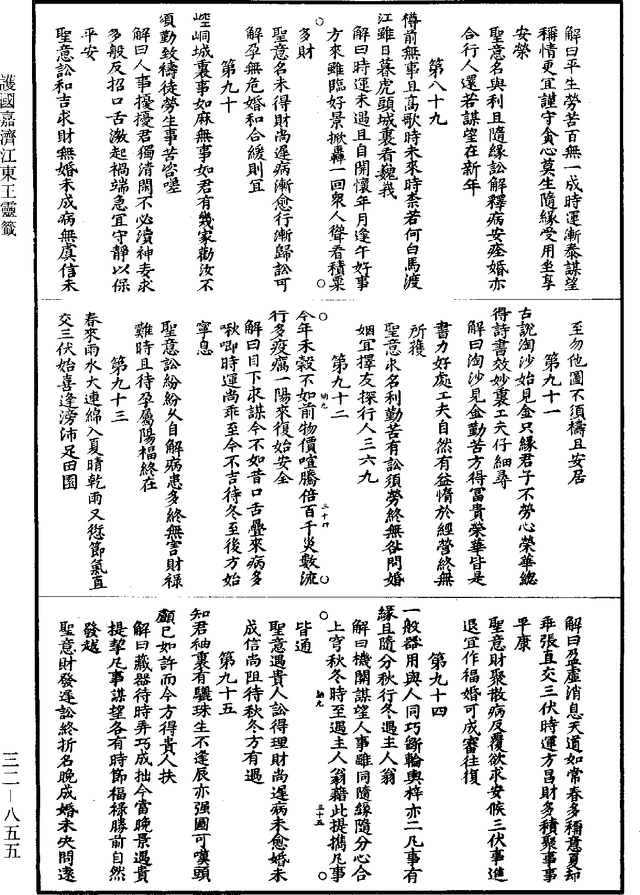 解曰平生勞苦百無一成時運漸泰謀望
稱情更宜謹守貪心莫生隨緣受用坐享
安榮
聖意名與利且隨緣訟解釋病安痊婚亦
合行人還若謀望在新年
第八十九
樽前無事且高歌時未來時奈若何白馬渡
江雖日暮虎頭城裏看巍我
解曰時運未過且自開懷年月逢午好事
方來雖臨好景掀轟一回衆人聳看積粟
多財
聖意名未得財尚遲病漸愈行漸歸訟可
解孕無危婚和合緩則宜
第九十
崆峒城裏事如麻無事如君有幾家勸汝不
須勤致禱徒勞生事苦咨嗟
解曰人事擾擾君獨清閑不必瀆神表求
多般反招口舌激起禍端急宜守靜以保
平安
聖意訟和吉求財無婚未成病無虞信未
至勿他圖不須禱且安居
第九十一
古說淘沙始見金只緣君子不勞心榮華總
得詩書效妙裏工夫仔細尋
解曰淘沙見金勤苦方得冨貴榮華皆是
書力好處工夫自然有益惰於經營終無
所獲
聖意求名利勤苦有訟須勞終無咎問婚
姻宜擇友探行人三六九
第九十二
今年禾穀不如前物價喧騰倍百千災數流
行多疫癘一陽來復始安全
解曰目下求謀今不如昔口舌疊來病多
啾唧時運尚乖至今不吉待冬至後方始
寧息
聖意訟紛紛久自解病患多終無害財祿
難時且待孕屬陽福終在
第九十三
春來雨水大連綿入夏晴乾雨又愆節氣直
交三伏始喜逢滂沛足田園
解曰盈虛消息天道如常春多稱意夏却
乖張直交三伏時運方昌財多積聚事事
平康
聖意財聚散病反覆欲求安候三伏事進
退宜作福婚可成審往復
第九十四
一般器用與人同巧斵輪輿梓亦工凡事有
緣且隨分秋行冬遇主人翁
解曰機關謀望人事雖同隨緣隨分心合
上穹秋冬時至遇主人翁藉此提攜凡事
皆通
聖意遇貴人訟得理財尚遲病未愈婚未
成信尚阻待秋冬方有遇
第九十五
知君袖裏有驪珠生不逢辰亦强圖可嘆頭
顱已如許而今方得貴人扶
解曰藏器待時弄巧成拙今當晚景遇貴
提挈凡事謀望各有時節福祿勝前自然
發越
聖意財發運訟終折名晚成婚未决問遠
護國嘉濟江東王靈籤
三二—八五五